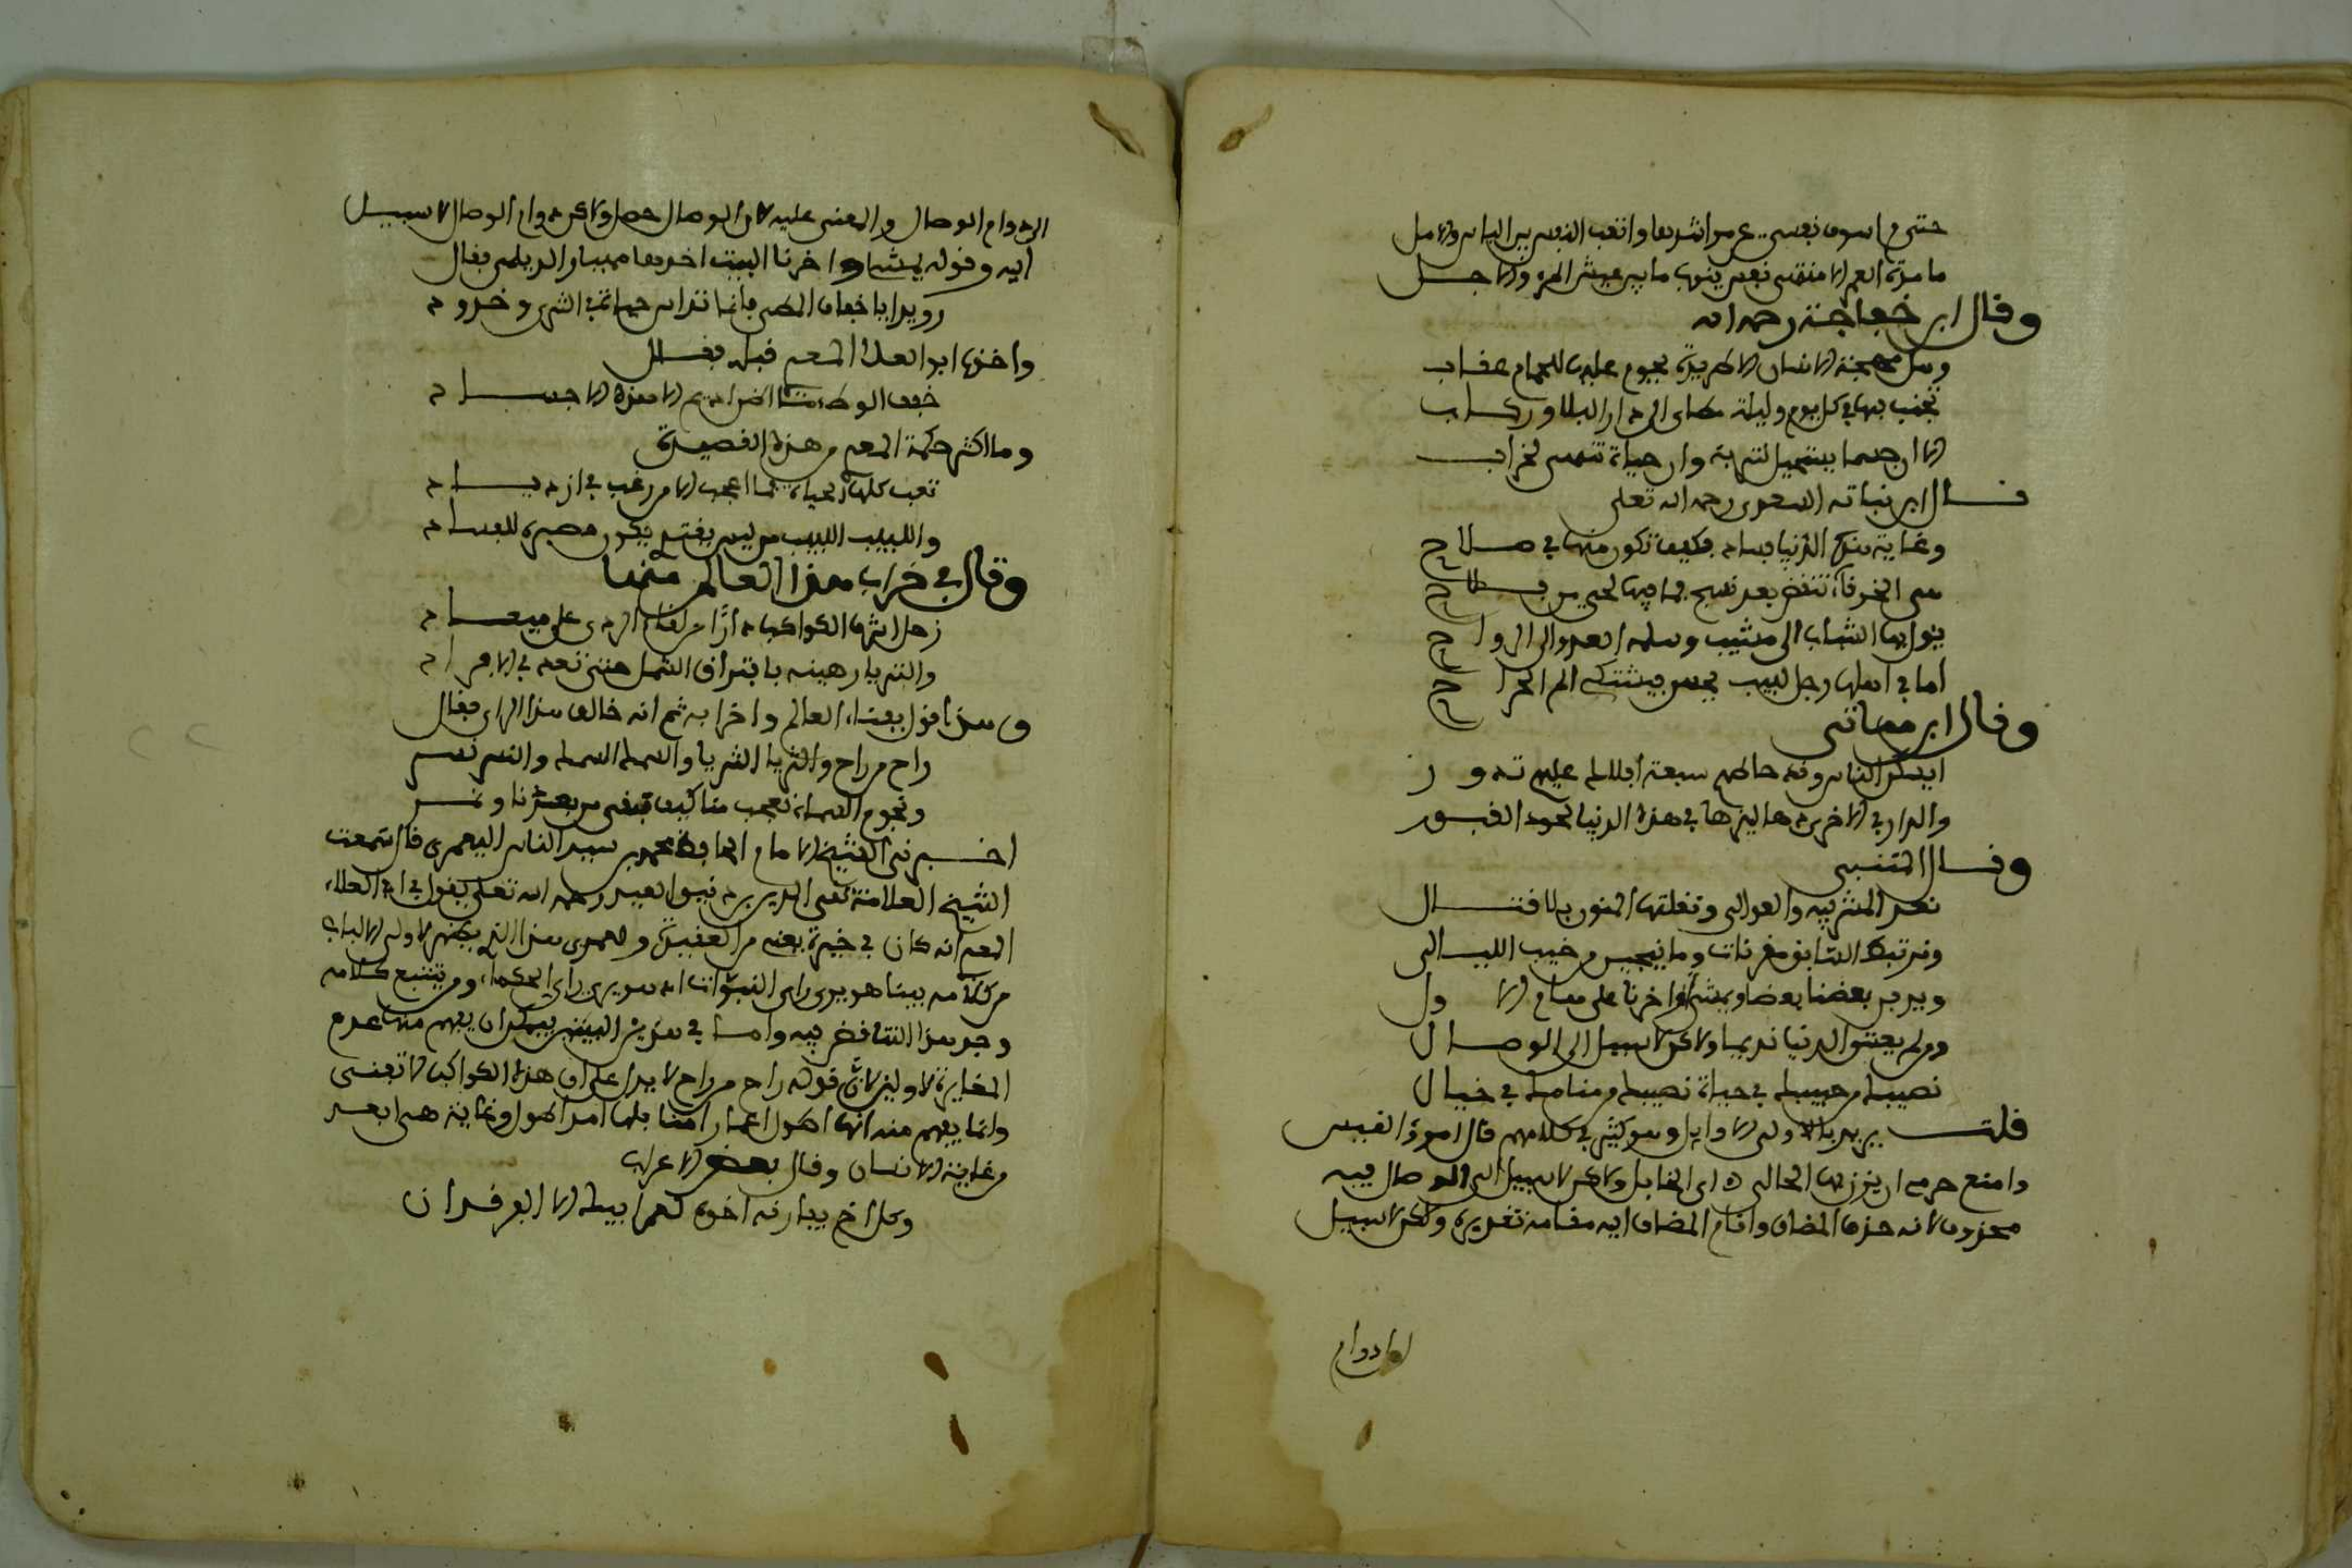 حتى م اسوف نفسي عن مراشدها واتعب النفس بين الياس والامل
ما مدة العمر الا منقضى نفس ينوب ما بين عيش المرء والاجل
وقال ابن خفاجة رحمه الله
وهل مهجة الانسان الا طريدة يحوم عليها للحمام عقاب
تخب بها في كل يوم وليلة مطايا الى دار البلا وركاب
الا ان جسما يستحيل لتربة وان حياة تنتهي لخراب
قال ابن نباته السعدي رحمه الله تعلى
وغاية هذه الدنيا فساد فكيف تكون منها في صلاح
هي الخرقاء تنقض بعد نسج فما فيها لحي من فلاح
يؤول بها الشباب الى مشيب وسلمه الغدو الى الرواح
اما في اهلها رجل لبيب يحس فيشتكي الم الجراح
وقال ابن مماتي
ايسكن الناس وقد حاطهم سبعة افلاك عليهم تدور
والدار في الاخرى دهاليزها في هذه الدنيا لحود القبور
وقال المتنبي
نعد المشرفية والعوالي وتقتلنا المنون بلا قتال
ونرتبط السوابق مقربات وما ينجين من خبب الليالي
ويدفن بعضنا بعضا ويمشي اواخرنا على هام الاول
ومن لم يعشق الدنيا قديما ولاكن لا سبيل الى الوصال
نصيبك من حبيبك في حياة نصيبك من منامك في خيال
قلت يريد بالاولى الاوايل وهو كثير في كلامهم قال امرؤ القيس
وامنع عرسي ان يزن بها الخالي اي الخايل ولاكن لا سبيل الى الوصال فيه
محذوف لانه حذف المضاف واقام المضاف اليه مقامه تقديره ولكن لا سبيل
الى دوام
الى دوام الوصال والمعنى عليه لان الوصال حصل ولاكن دوام الوصال لا سبيل
اليه وقوله يمشي اواخرنا البيت اخذه مهيار الديلمي فقال
رويدا باخفاف المطي فانما تداس جباه في الثرى وخدود
واخذه ابو العلا المعري قبله فقال
خفف الوطء ما اظن اديم الا من هذه الاجساد
وما اكثر حكمة المعري من هذه القصيدة
تعب كلها الحياة فما اعجب الا من راغب في ازدياد
واللبيب اللبيب من ليس يغتر بكون مصيره للفساد
وقال في خراب هذا العالم منها
زحل اشرف الكواكب دارا من لقاء الردى على ميعاد
والثريا رهينة بافتراق الشمل حتى تعد في الافراد
وهذا قول بفناء العالم واخرابه ثم انه خالف هذا الراي فقال
راح من راح والثريا الثريا والسماك السماك والنسر نسر
ونجوم السماء تعجب منا كيف تبقى من بعدنا ونمر
اخبرني الشيخ الامام الحافظ محمد بن سيد الناس اليعمري قال سمعت
الشيخ العلامة تقي الدين بن دقيق العيد رحمه الله تعلى يقول في ابي العلاء
المعري انه كان في حيرة يعني من العقيدة ولعمري هذا الذي يظهر لاولي الالباب
من كلامه بينا هو يرى راي النبوات اذ هو يرى راي الحكماء ومن تتبع كلامه
وجد هذا التناقض فيه واما في هذين البيتين فيمكن ان يفهم منها عدم
المغايرة لاولين لان قوله راح من راح لا يدل على ان هذه الكواكب لا تفنى
وانما يفهم منه انها اطول اعمارا منا فلها امد اطول وغاية هي ابعد
من غاية الانسان وقال بعض الاعراب
وكل اخ يفارقه اخوه لعمر ابيك الا الفرقدان